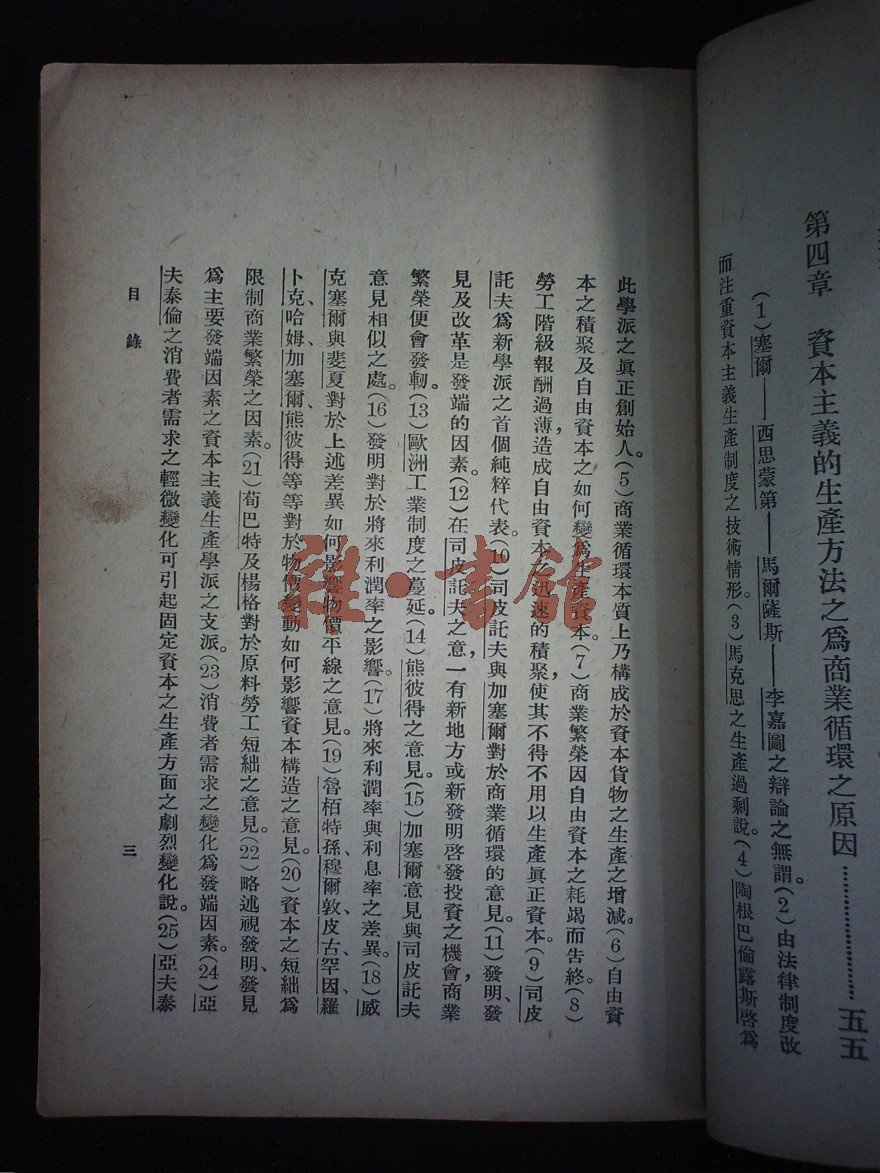 第四章 資本主義的生產方法之爲商業循環之原因……………………五五
(1)塞爾——西思蒙第——馬爾薩斯——李嘉圖之辯論之無謂。(2)由法律制度改
而注重資本主義生產制度之技術情形。(3)馬克思之生產過剩說。(4)陶根巴倫露斯啓爲
此學派之眞正創始人。(5)商業循環本質上乃構成於資本貨物之生產之增減。(6)自由資
本之積聚及自由資本之如何變爲生產資本。(7)商業繁榮因自由資本之耗竭而告終。(8)
勞工階級報酬過薄,造成自由資本之迅速的積聚,使其不得不用以生產眞正資本。(9)司皮
託夫爲新學派之首個純粹代表。(10)司皮託夫與加塞爾對於商業循環的意見。(11)發明、發
見及改革是發端的因素。(12)在司皮託夫之意,一有新地方或新發明啓發投資之機會,商業
繁榮便會發軔。(13)歐洲工業制度之蔓延。(14)熊彼得之意見。(15)加塞爾意見與司皮託夫
意見相似之處。(16)發明對於將來利潤率之影響。(17)將來利潤率與利息率之差異。(18)威
克塞爾與斐夏對於上述差異如何影響物價平線之意見。(19)魯栢特孫、穆爾敦、皮古、罕因、羅
卜克哈姆、加塞爾、熊彼得等等對於物價變動如何影響資本構造之意見。(20)資本之短絀爲
限制商業繁榮之因素。(21)荀巴特及楊格對於原料勞工短絀之意見。(22)略述視發明、發見
爲主要發端因素之資本主義生產學派之支派。(23)消費者需求之變化爲發端因素。(24)亞
夫泰倫之消費者需求之輕微變化可引起固定資本之生產方面之劇烈變化說。(25)亞夫泰
目錄
三
雜·書館